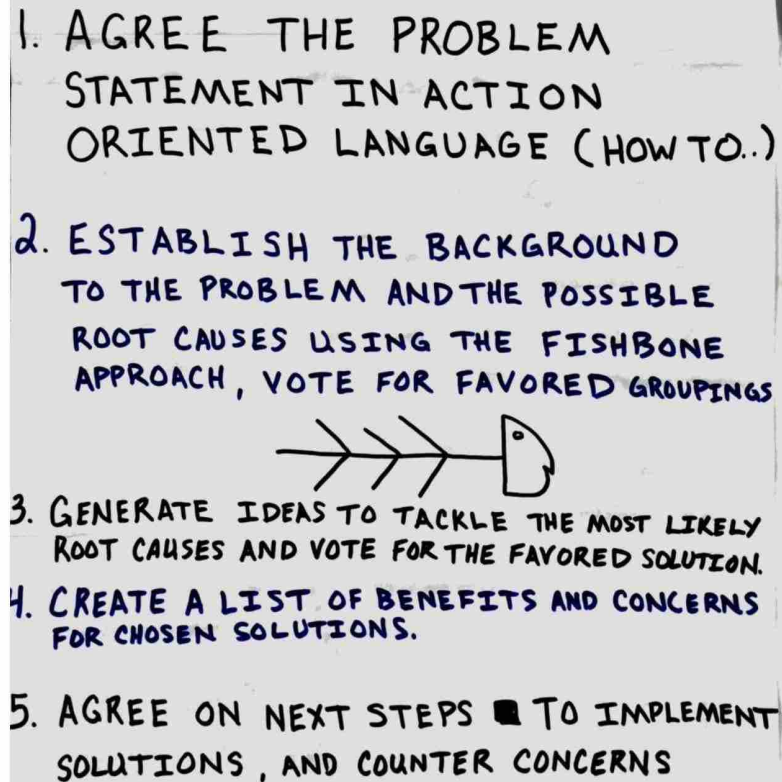 1. AGREE THE PROBLEM
STATEMENT IN ACTION
ORIENTED LANGUAGE (HOW TO..)
2. ESTABLISH THE BACKGROUND
TO THE PROBLEM AND THE POSSIBLE
ROOT CAUSES USING THE FISHBONE
APPROACH, VOTE FOR FAVORED GROUPINGS
3. GENERATE IDEAS TO TACKLE THE MOST LIKELY
ROOT CAUSES AND VOTE FOR THE FAVORED SOLUTION.
4. CREATE A LIST OF BENEFITS AND CONCERNS
FOR CHOSEN SOLUTIONS.
5. AGREE ON NEXT STEPS TO IMPLEMENT
SOLUTIONS, AND COUNTER CONCERNS